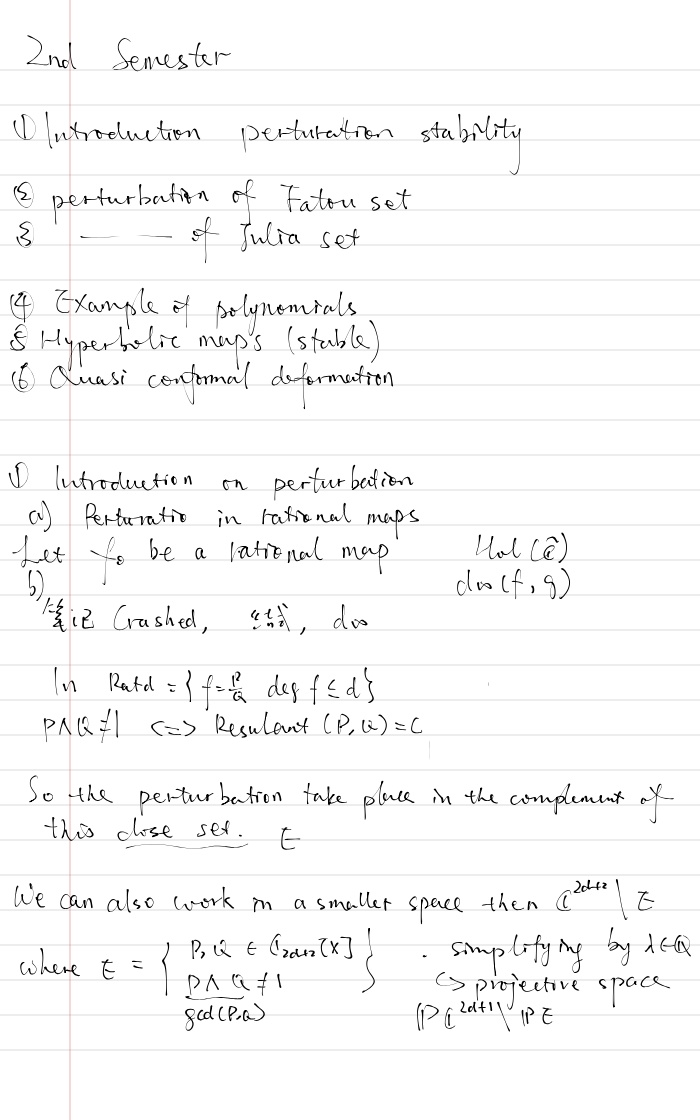 2nd Semester
① Introduction perturation stability
② perturbation of Fatou set
3 — — of Julia set
④ Example of polynomials
5 Hyperbolic maps (stable)
⑥ Quasi conformal deformation
① Introduction on perturbation
a) Perturatio in rational maps
Let f₀ be a rational map Hol(Ĉ)
b) d∞(f, g)
笔记 Crashed, d∞
In Ratd = { f = P/Q deg f ≤ d }
P∧Q ≠ 1 <=> Resulant (P, Q) = C
So the perturbation take place in the complement of
this close set. E
We can also work in a smaller space then ℂ^{2d+2} \ E
where E = { P, Q ∈ ℂ_{2d+2}[X] P∧Q ≠ 1 } . simplifying by λ∈Q
gcd(P,Q) ↪ projective space
ℙℂ^{2d+1} \ ℙE